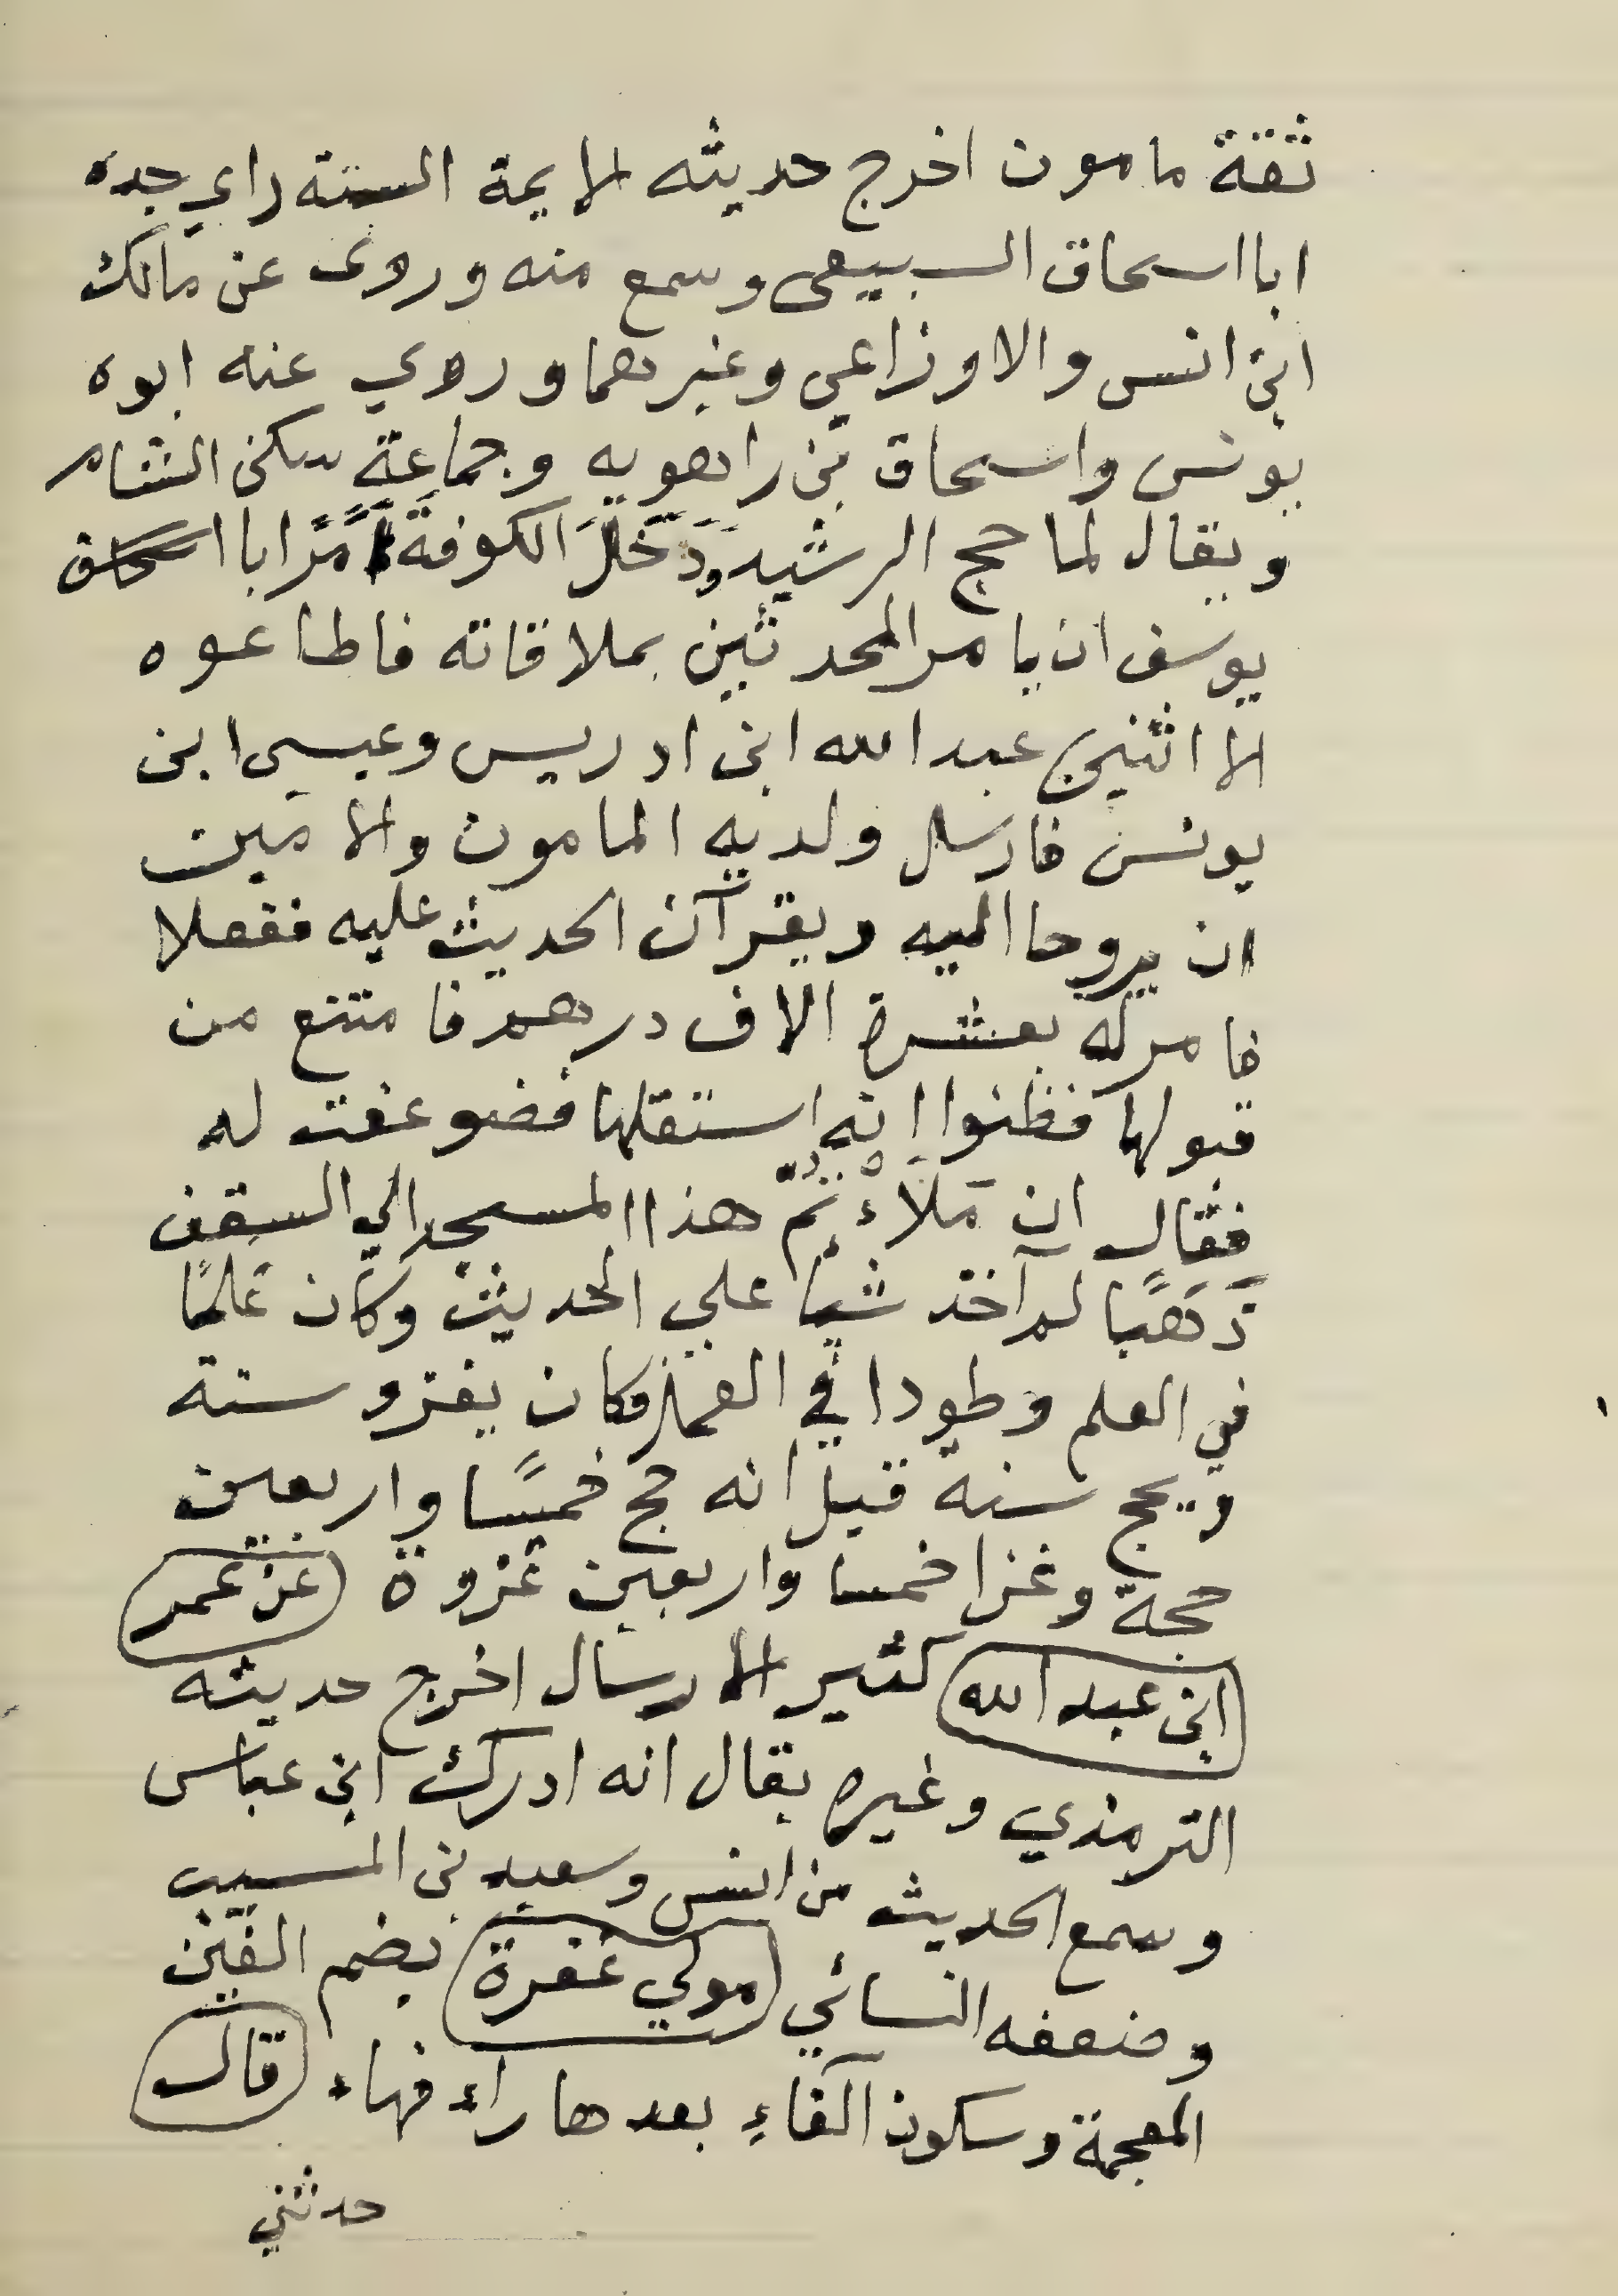 ثقة مامون اخرج حديثه الايمة الستة راي جده
ابا اسحاق السبيعى وسمع منه وروى عن مالك
ابن انس والاوزاعي وغيرهما وروي عنه ابوه
يونس واسحاق بن راهويه وجماعة سكن الشام
ويقال لما حج الرشيد ودَخَلَ الكوفةَ امَرَ ابا اسحاق
يوسف ان يامر المحدثين بملاقاته فاطاعوه
الا اثنين عبد الله ابن ادريس وعيسى ابن
يونس فارسل ولديه المامون والامين
ان يروحا اليه ويقرآن الحديث عليه ففعلا
فامر له بعشرة الاف درهم فامتنع من
قبولها فظنوا انه استقلها فضوعفت له
فقال ان مَلَاءْتُمْ هذا المسجد الي السقف
ذَهَبًا لم آخذ شيأ علي الحديث وكان عَلَمًا
في العلم وطودا في العمل وكان يغزو سنة
ويحج سنة قيل انه حج خمسًا واربعين
حجة وغزا خمسا واربعين غزوة (عن عمر
ابن عبد الله) كثير الارسال اخرج حديثه
الترمذي وغيره يقال انه ادرك ابن عباس
وسمع الحديث من انس وسعيد بن المسيب
وضعفه النسائي (مولي غفرة) بضم الغين
المعجمة وسكون الفاءِ بعدها راء فهاء (قال)
حدثني